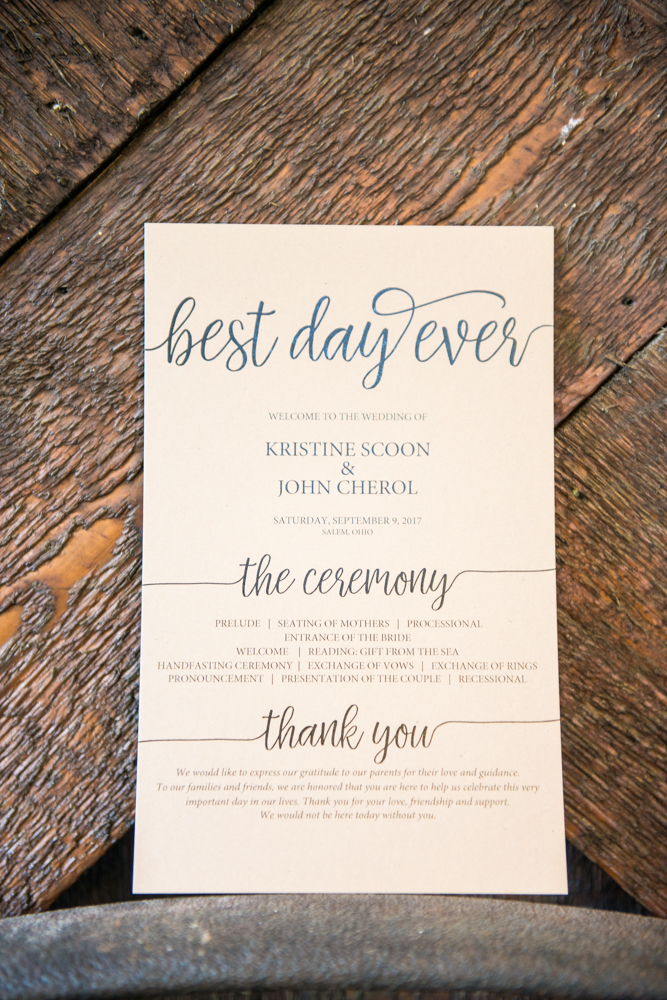 best day ever
WELCOME TO THE WEDDING OF
KRISTINE SCOON
&
JOHN CHEROL
SATURDAY, SEPTEMBER 9, 2017
SALEM, OHIO
the ceremony
PRELUDE | SEATING OF MOTHERS | PROCESSIONAL
ENTRANCE OF THE BRIDE
WELCOME | READING: GIFT FROM THE SEA
HANDFASTING CEREMONY | EXCHANGE OF VOWS | EXCHANGE OF RINGS
PRONOUNCEMENT | PRESENTATION OF THE COUPLE | RECESSIONAL
thank you
We would like to express our gratitude to our parents for their love and guidance.
To our families and friends, we are honored that you are here to help us celebrate this very
important day in our lives. Thank you for your love, friendship and support.
We would not be here today without you.